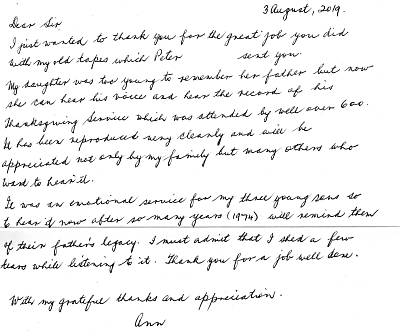 3 August, 2019.
Dear Sir
I just wanted to thank you for the great job you did
with my old tapes which Peter sent you.
My daughter was too young to remember her father but now
she can hear his voice and hear the record of his
Thanksgiving Service which was attended by well over 600.
It has been reproduced very cleanly and will be
appreciated not only by my family but many others who
want to hear it.
It was an emotional service for my three young sons so
to hear it now after so many years (1974) will remind them
of their father's legacy. I must admit that I shed a few
tears while listening to it. Thank you for a job well done.
With my grateful thanks and appreciation.
Ann